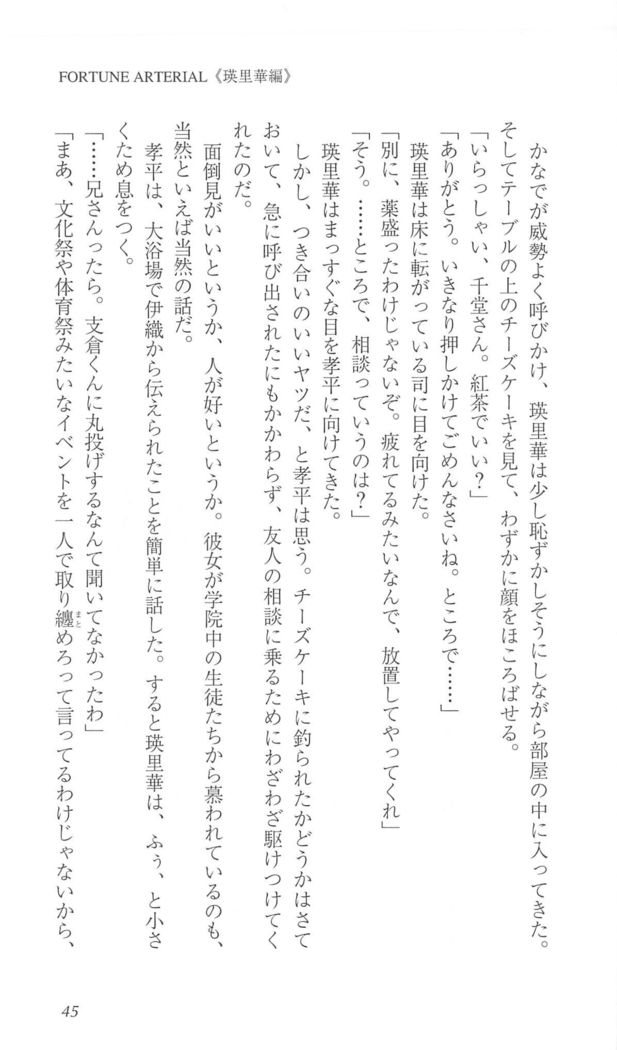 FORTUNE ARTERIAL《瑛里華編》
　かなでが威勢よく呼びかけ、瑛里華は少し恥ずかしそうにしながら部屋の中に入ってきた。
そしてテーブルの上のチーズケーキを見て、わずかに顔をほころばせる。
「いらっしゃい、千堂さん。紅茶でいい？」
「ありがとう。いきなり押しかけてごめんなさいね。ところで……」
　瑛里華は床に転がっている司に目を向けた。
「別に、薬盛ったわけじゃないぞ。疲れてるみたいなんで、放置してやってくれ」
「そう。……ところで、相談っていうのは？」
　瑛里華はまっすぐな目を孝平に向けてきた。
　しかし、つき合いのいいヤツだ、と孝平は思う。チーズケーキに釣られたかどうかはさて
おいて、急に呼び出されたにもかかわらず、友人の相談に乗るためにわざわざ駆けつけてく
れたのだ。
　面倒見がいいというか、人が好いというか。彼女が学院中の生徒たちから慕われているのも、
当然といえば当然の話だ。
　孝平は、大浴場で伊織から伝えられたことを簡単に話した。すると瑛里華は、ふぅ、と小さ
くため息をつく。
「……兄さんったら。支倉くんに丸投げするなんて聞いてなかったわ」
「まあ、文化祭や体育祭みたいなイベントを一人で取り纏めろって言ってるわけじゃないから、
まと
45